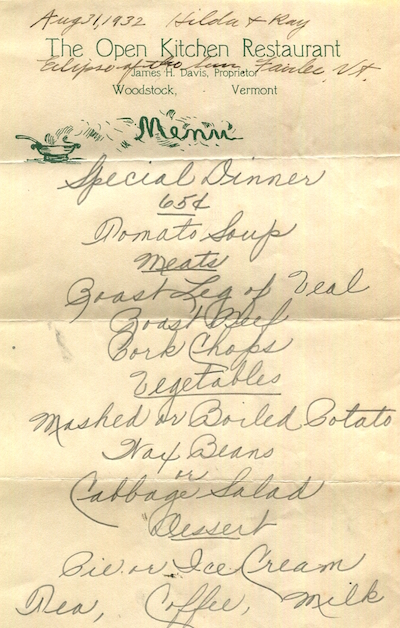 Aug 31, 1932 Hilda & Ray
The Open Kitchen Restaurant
Eclipse of the Sun, Fairlee, Vt.
James H. Davis, Proprietor
Woodstock, Vermont
Menu
Special Dinner
65¢
Tomato Soup
Meats
Roast Leg of Veal
Roast Beef
Pork Chops
Vegetables
Mashed or Boiled Potato
Wax Beans
or
Cabbage Salad
Dessert
Pie or Ice Cream
Tea, Coffee, Milk